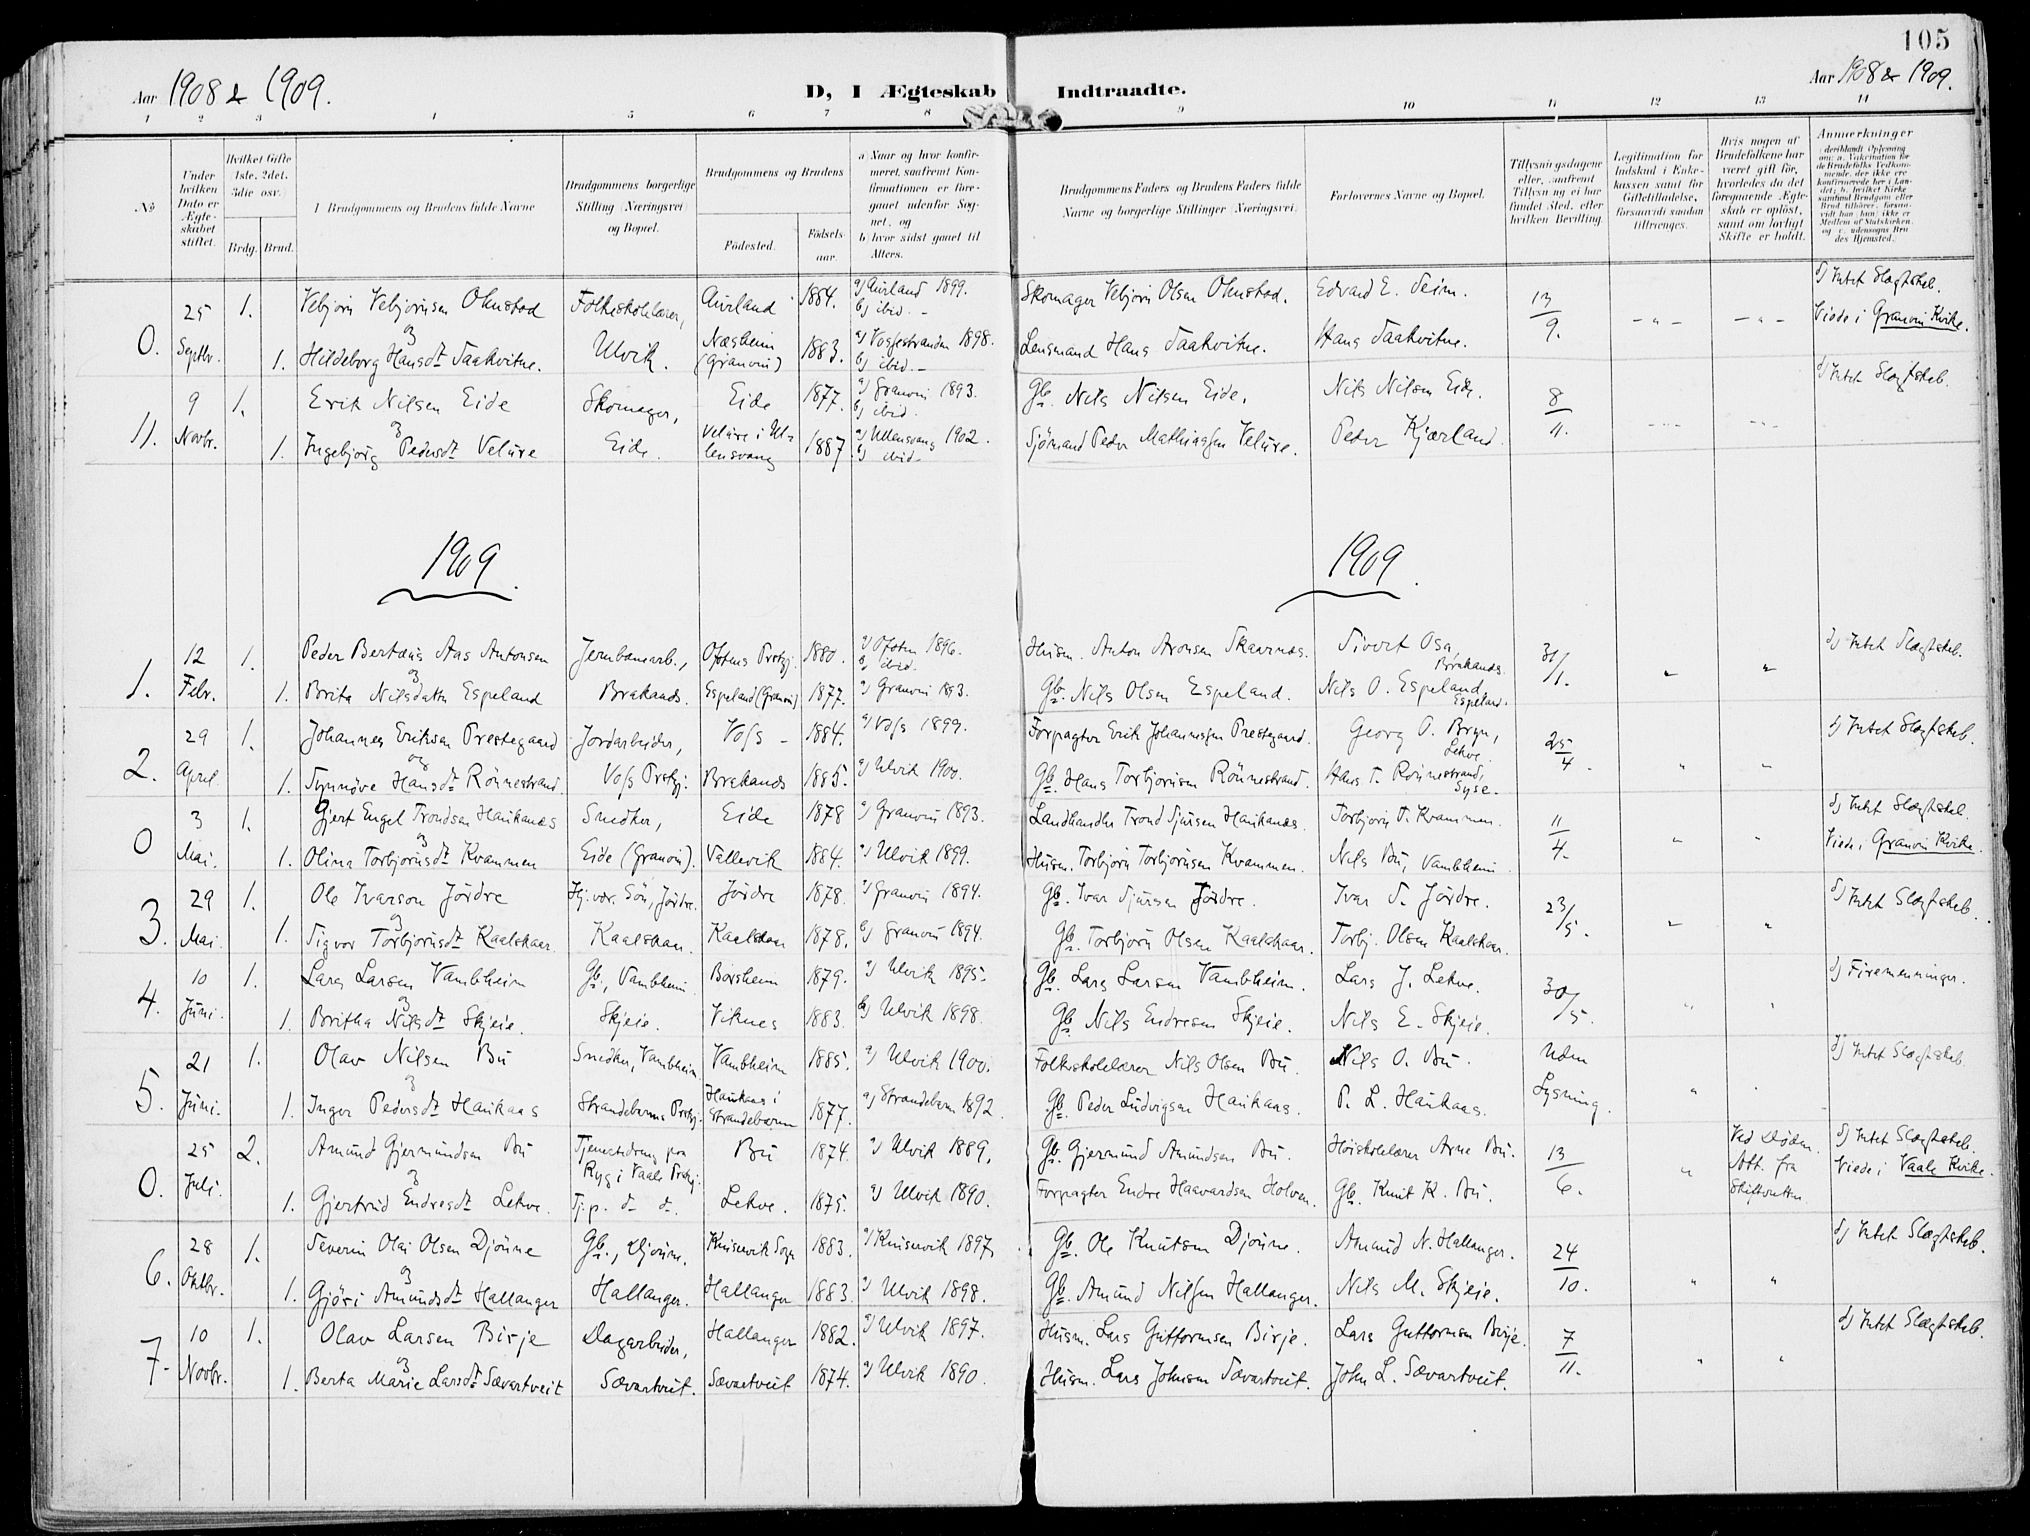 105
Aar 1908 & 1909.
D, I Ægteskab Indtraadte.
Aar 1908 & 1909.
1 2 3 4 5 6 7 8 9 10 11 12 13 14
No
Under hvilken Dato er Ægteskabet stiftet.
Hvilket Gifte 1ste. 2det. 3die osv.
Brdg. Brud.
Brudgommens og Brudens fulde Navne
Brudgommens borgerlige Stilling (Næringsvei) og Bopæl.
Brudgommens og Brudens
Födested.
Födselsaar.
a) Naar og hvor konfirmeret, saafremt Konfirmationen er foregaaet udenfor Sognet, og
b) hvor sidst gaaet til Alters.
Brudgommens Faders og Brudens Faders fulde Navne og borgerlige Stillinger (Næringsvei)
Forlovernes Navne og Bopæl.
Tillysningsdagene eller, saafremt Tillysning ei har fundet Sted, efter hvilken Bevilling.
Legitimation for Indskud i Enkekassen samt for Giftetilladelse, forsaavidt saadan tiltrænges.
Hvis nogen af Brudefolkene har været gift før, hvorledes da det foregaaende Ægteskab er opløst, samt om lovligt Skifte er holdt.
Anmærkninger
0. 25 Septbr. 1. Vebjörn Vebjörnsen Ohnstad Folkeskolelærer, Aurland 1884. a) Aurland 1899. b) ibid. Skomager Vebjörn Olsen Ohnstad. Edvard E. Seim. 13/9. d) Intet Slægtskab.
og
1. Hildeborg Hansdt Saakvitne. Ulvik. Næsheim (Granvin) 1883. a) Vossestranden 1898. b) ibid. Lensmand Hans Saakvitne. Hans Saakvitne. Viede i Granvin Kirke.
11. 9 Novbr. 1. Erik Nilsen Eide Skomager, Eide 1877. a) Granvin 1893. b) ibid. Gb. Nils Nilsen Eide. Nils Nilsen Eide. 8/11. d) Intet Slægtskab.
og
1. Ingebjörg Pedersdt Velure Eide. Velure i Ullensvang 1887 a) Ullensvang 1902. b) ibid. Sjömand Peder Mathiassen Velure. Peder Kjærland.
1909. 1909.
1. 12 Febr. 1. Peder Bertæus Aas Antonsen Jernbanearb., Ofotens Prstgj. 1880. a) Ofoten 1896. b) ibid. Husm. Anton Aronsen Skavnæs. Sivert Osa, Brakanæs 31/1. d) Intet Slægtskab.
og
1. Brita Nilsdatter Espeland Brakanæs. Espeland (Granvin) 1877. a) Granvin 1893. Gb. Nils Olsen Espeland. Nils O. Espeland, Espeland.
2. 29 April. 1. Johannes Eriksen Prestegaard Jordarbeider, Voss 1884. a) Voss 1899. Forpagter Erik Johannessen Prestegaard. Georg O. Bryn, Lekve 25/4. d) Intet Slægtskab.
og
1. Synnöve Hansdt Rönnestrand. Voss Prstgj. Brakanæs 1885. a) Ulvik 1900. Gb. Hans Torbjörnsen Rönnestrand. Hans T. Rönnestrand, Syse.
0 3 Mai. 1. Gjert Engel Trondsen Haukanæs Snedker, Eide 1878 a) Granvin 1893. Landhandler Trond Sjursen Haukanæs. Torbjörn T. Kvammen. 11/4. d) Intet Slægtskab.
og
1. Olina Torbjörnsdt Kvammen Eide (Granvin). Vallevik 1884. a) Ulvik 1899. Husm. Torbjörn Torbjörnsen Kvammen. Nils Bu, Vambheim Viede i Granvin Kirke.
3. 29 Mai. 1. Ole Ivarson Jördre Hj.vær. Sön, Jördre. Jördre 1878. a) Granvin 1894. Gb. Ivar Sjursen Jördre. Ivar S. Jördre. 23/5. d) Intet Slægtskab.
og
1. Sigvor Torbjörnsdt Kaalskaar Kaalskaar. Kaalskaar 1878. a) Granvin 1894. Gb. Torbjörn Olsen Kaalskaar. Torbj. Olsen Kaalskaar.
4. 10 Juni. 1. Lars Larsen Vambheim Gb., Vambheim Borsheim 1879. a) Ulvik 1895. Gb. Lars Larsen Vambheim. Lars J. Lekve. 30/5. d) Firemenninger.
og
1. Britha Nilsdt Skjeie. Skjeie. Viknes 1883. a) Ulvik 1898. Gb. Nils Endresen Skjeie. Nils E. Skjeie.
5. 21 Juni. 1. Olav Nilsen Bu Snedker, Vambheim, Vambheim 1885. a) Ulvik 1900. Folkeskolelærer Nils Olsen Bu. Nils O. Bu. Uden Lysning. d) Intet Slægtskab.
og
1. Inger Pedersdt Haukaas Strandebarms Prstgj. Haukaas i Strandebarm 1877. a) Strandebarm 1892. Gb. Peder Ludvigsen Haukaas. P. L. Haukaas.
0. 25 Juli. 2. Amund Gjermundsen Bu Tjenestedreng paa Ryg i Vaale Prstgj. Bu 1874. a) Ulvik 1889. Gb. Gjermund Amundsen Bu. Höiskolelærer Arne Bu. 13/6. Ved Döden. Att. fra Skifteretten. d) Intet Slægtskab.
og
1. Gjertrud Endresdt Lekve. Tj. p. d. d. Lekve. 1875. a) Ulvik 1890. Forpagter Endre Haavardsen Holven. Gb. Knut K. Bu. Viede i Vaale Kirke.
6. 28 Oktbr. 1. Severin Olai Olsen Djönne Gb., Djönne. Kinservik Sogn 1883. a) Kinservik 1897. Gb. Ole Knutsen Djönne. Amund N. Hallanger. 24/10. d) Intet Slægtskab.
og
1. Gjöri Amundsdt Hallanger Hallanger. Hallanger 1883. a) Ulvik 1898. Gb. Amund Nilssen Hallanger. Nils M. Skjeie.
7. 10 Novbr. 1. Olav Larsen Birje Dagarbeider, Hallanger 1882. a) Ulvik 1897. Husm. Lars Guttormsen Birje. Lars Guttormsen Birje. 7/11. d) Intet Slægtskab.
og
1. Berta Marie Larsdt Sævartveit Sævartveit. Sævartveit 1874. a) Ulvik 1890. Husm. Lars Johnsen Sævartveit. John L. Sævartveit.